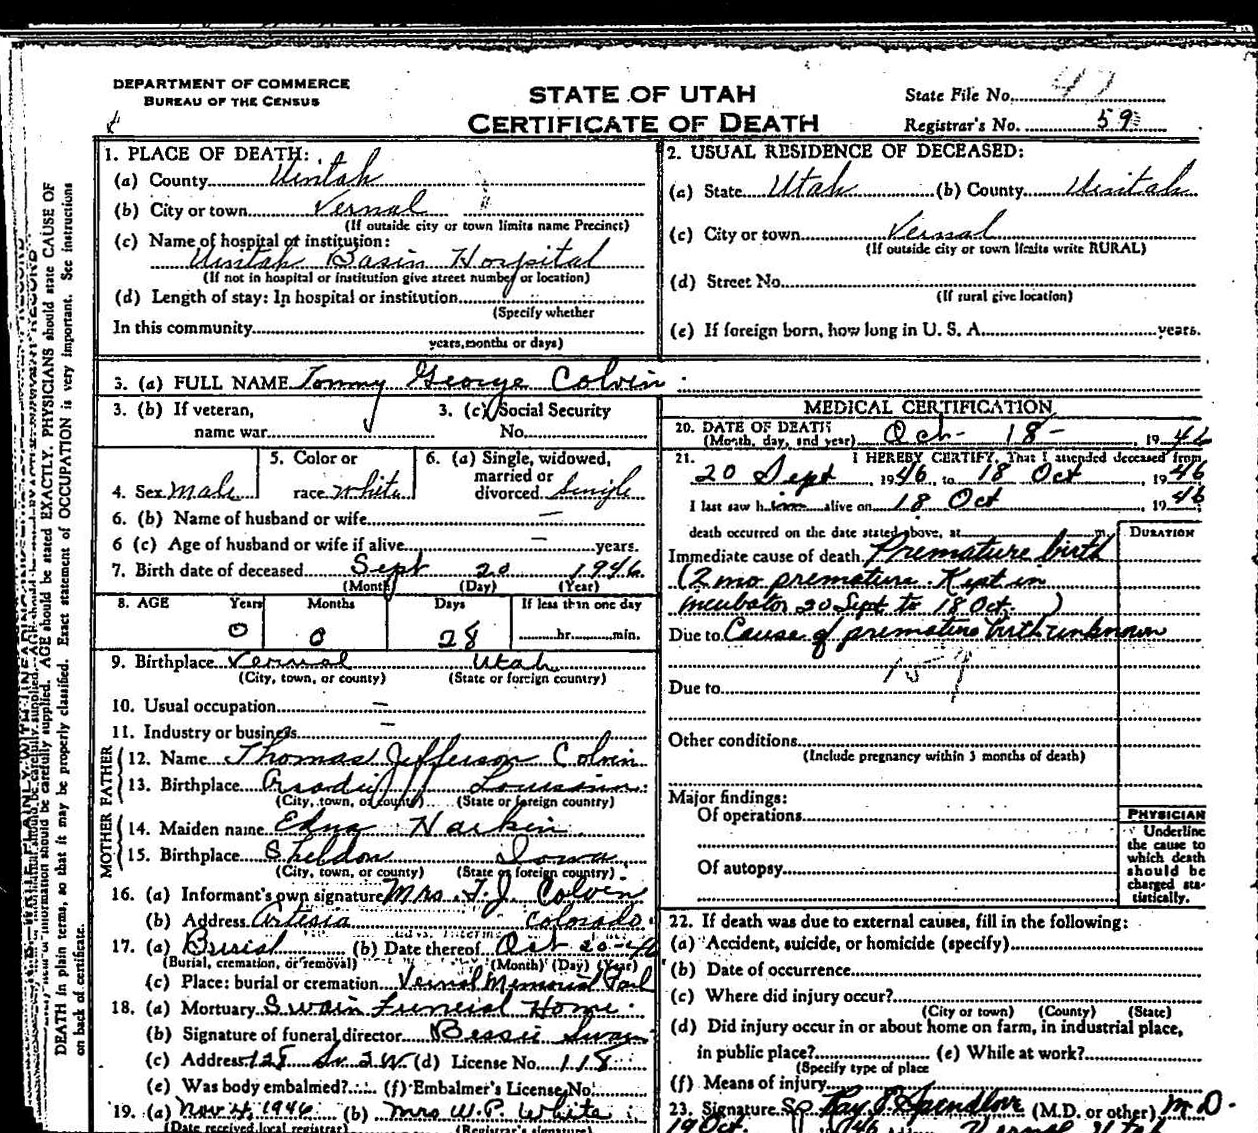 DEPARTMENT OF COMMERCE
BUREAU OF THE CENSUS
STATE OF UTAH
CERTIFICATE OF DEATH
State File No. 47
Registrar's No. 59
1. PLACE OF DEATH:
(a) County Uintah
(b) City or town Vernal
(If outside city or town limits name Precinct)
(c) Name of hospital or institution:
Uintah Basin Hospital
(If not in hospital or institution give street number or location)
(d) Length of stay: In hospital or institution
(Specify whether
In this community
years, months or days)
2. USUAL RESIDENCE OF DECEASED:
(a) State Utah (b) County Uintah
(c) City or town Vernal
(If outside city or town limits write RURAL)
(d) Street No.
(If rural give location)
(e) If foreign born, how long in U. S. A. years.
3. (a) FULL NAME Tommy George Colvin
3. (b) If veteran,
name war
3. (c) Social Security
No.
4. Sex Male
5. Color or
race white
6. (a) Single, widowed,
married or
divorced Single
6. (b) Name of husband or wife —
6 (c) Age of husband or wife if alive — years.
7. Birth date of deceased Sept 20 1946
(Month) (Day) (Year)
8. AGE Years Months Days If less than one day
0 0 28 hr. min.
9. Birthplace Vernal Utah
(City, town, or county) (State or foreign country)
10. Usual occupation —
11. Industry or business —
FATHER
12. Name Thomas Jefferson Colvin
13. Birthplace Louisiana
(City, town, or county) (State or foreign country)
MOTHER
14. Maiden name Edna Harkin
15. Birthplace Sheldon Iowa
(City, town, or county) (State or foreign country)
16. (a) Informant's own signature Mrs. T. J. Colvin
(b) Address Artesia Colorado
17. (a) Burial (b) Date thereof Oct 20-46
(Burial, cremation, or removal) (Month) (Day) (Year)
(c) Place: burial or cremation Vernal Memorial Park
18. (a) Mortuary Swain Funeral Home
(b) Signature of funeral director Bessie Swain
(c) Address 128 So. 2 W. (d) License No. 118
(e) Was body embalmed? (f) Embalmer's License No.
19. (a) Nov 4, 1946 (b) Mrs W. P. White
(Date received local registrar) (Registrar's signature)
MEDICAL CERTIFICATION
20. DATE OF DEATH
(Month, day, and year) Oct - 18 - , 1946
21. I HEREBY CERTIFY, That I attended deceased from
20 Sept, 1946, to 18 Oct, 1946
I last saw him alive on 18 Oct, 1946
death occurred on the date stated above, at m.
DURATION
Immediate cause of death Premature birth
(2 mo premature. Kept in
incubator 20 Sept to 18 Oct. )
Due to Cause of premature birth unknown
159
Due to
Other conditions
(Include pregnancy within 3 months of death)
Major findings:
Of operations
Of autopsy
PHYSICIAN
Underline
the cause to
which death
should be
charged sta-
tistically.
22. If death was due to external causes, fill in the following:
(a) Accident, suicide, or homicide (specify)
(b) Date of occurrence
(c) Where did injury occur?
(City or town) (County) (State)
(d) Did injury occur in or about home on farm, in industrial place,
in public place? (e) While at work?
(Specify type of place
(f) Means of injury
23. Signature Ray Spendlove (M.D. or other) M.D.
19 Oct. 1946 Vernal Utah
AGE should be stated EXACTLY. PHYSICIANS should state CAUSE OF
DEATH in plain terms, so that it may be properly classified. Exact statement of OCCUPATION is very important. See instructions
on back of certificate.